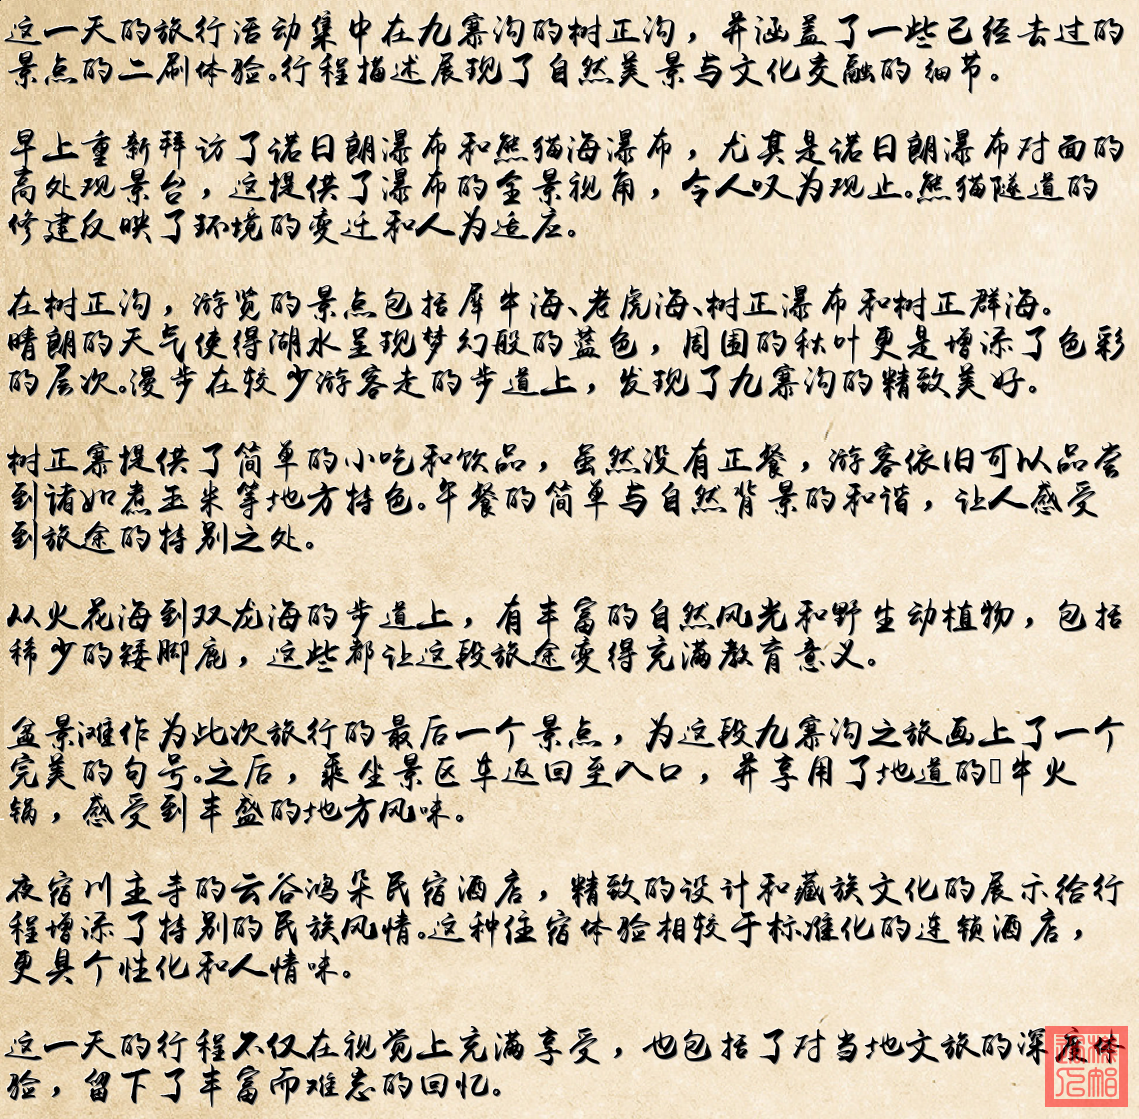 这一天的旅行活动集中在九寨沟的树正沟，并涵盖了一些已经去过的
景点的二刷体验。行程描述展现了自然美景与文化交融的细节。
早上重新拜访了诺日朗瀑布和熊猫海瀑布，尤其是诺日朗瀑布对面的
高处观景台，这提供了瀑布的全景视角，令人叹为观止。熊猫隧道的
修建反映了环境的变迁和人为适应。
在树正沟，游览的景点包括犀牛海、老虎海、树正瀑布和树正群海。
晴朗的天气使得湖水呈现梦幻般的蓝色，周围的秋叶更是增添了色彩
的层次。漫步在较少游客走的步道上，发现了九寨沟的精致美好。
树正寨提供了简单的小吃和饮品，虽然没有正餐，游客依旧可以品尝
到诸如煮玉米等地方特色。午餐的简单与自然背景的和谐，让人感受
到旅途的特别之处。
从火花海到双龙海的步道上，有丰富的自然风光和野生动植物，包括
稀少的矮脚鹿，这些都让这段旅途变得充满教育意义。
盆景滩作为此次旅行的最后一个景点，为这段九寨沟之旅画上了一个
完美的句号。之后，乘坐景区车返回至入口，并享用了地道的牛火
锅，感受到丰盛的地方风味。
夜宿川主寺的云谷鸿朵民宿酒店，精致的设计和藏族文化的展示给行
程增添了特别的民族风情。这种住宿体验相较于标准化的连锁酒店，
更具个性化和人情味。
这一天的行程不仅在视觉上充满享受，也包括了对当地文旅的深度体
验，留下了丰富而难忘的回忆。